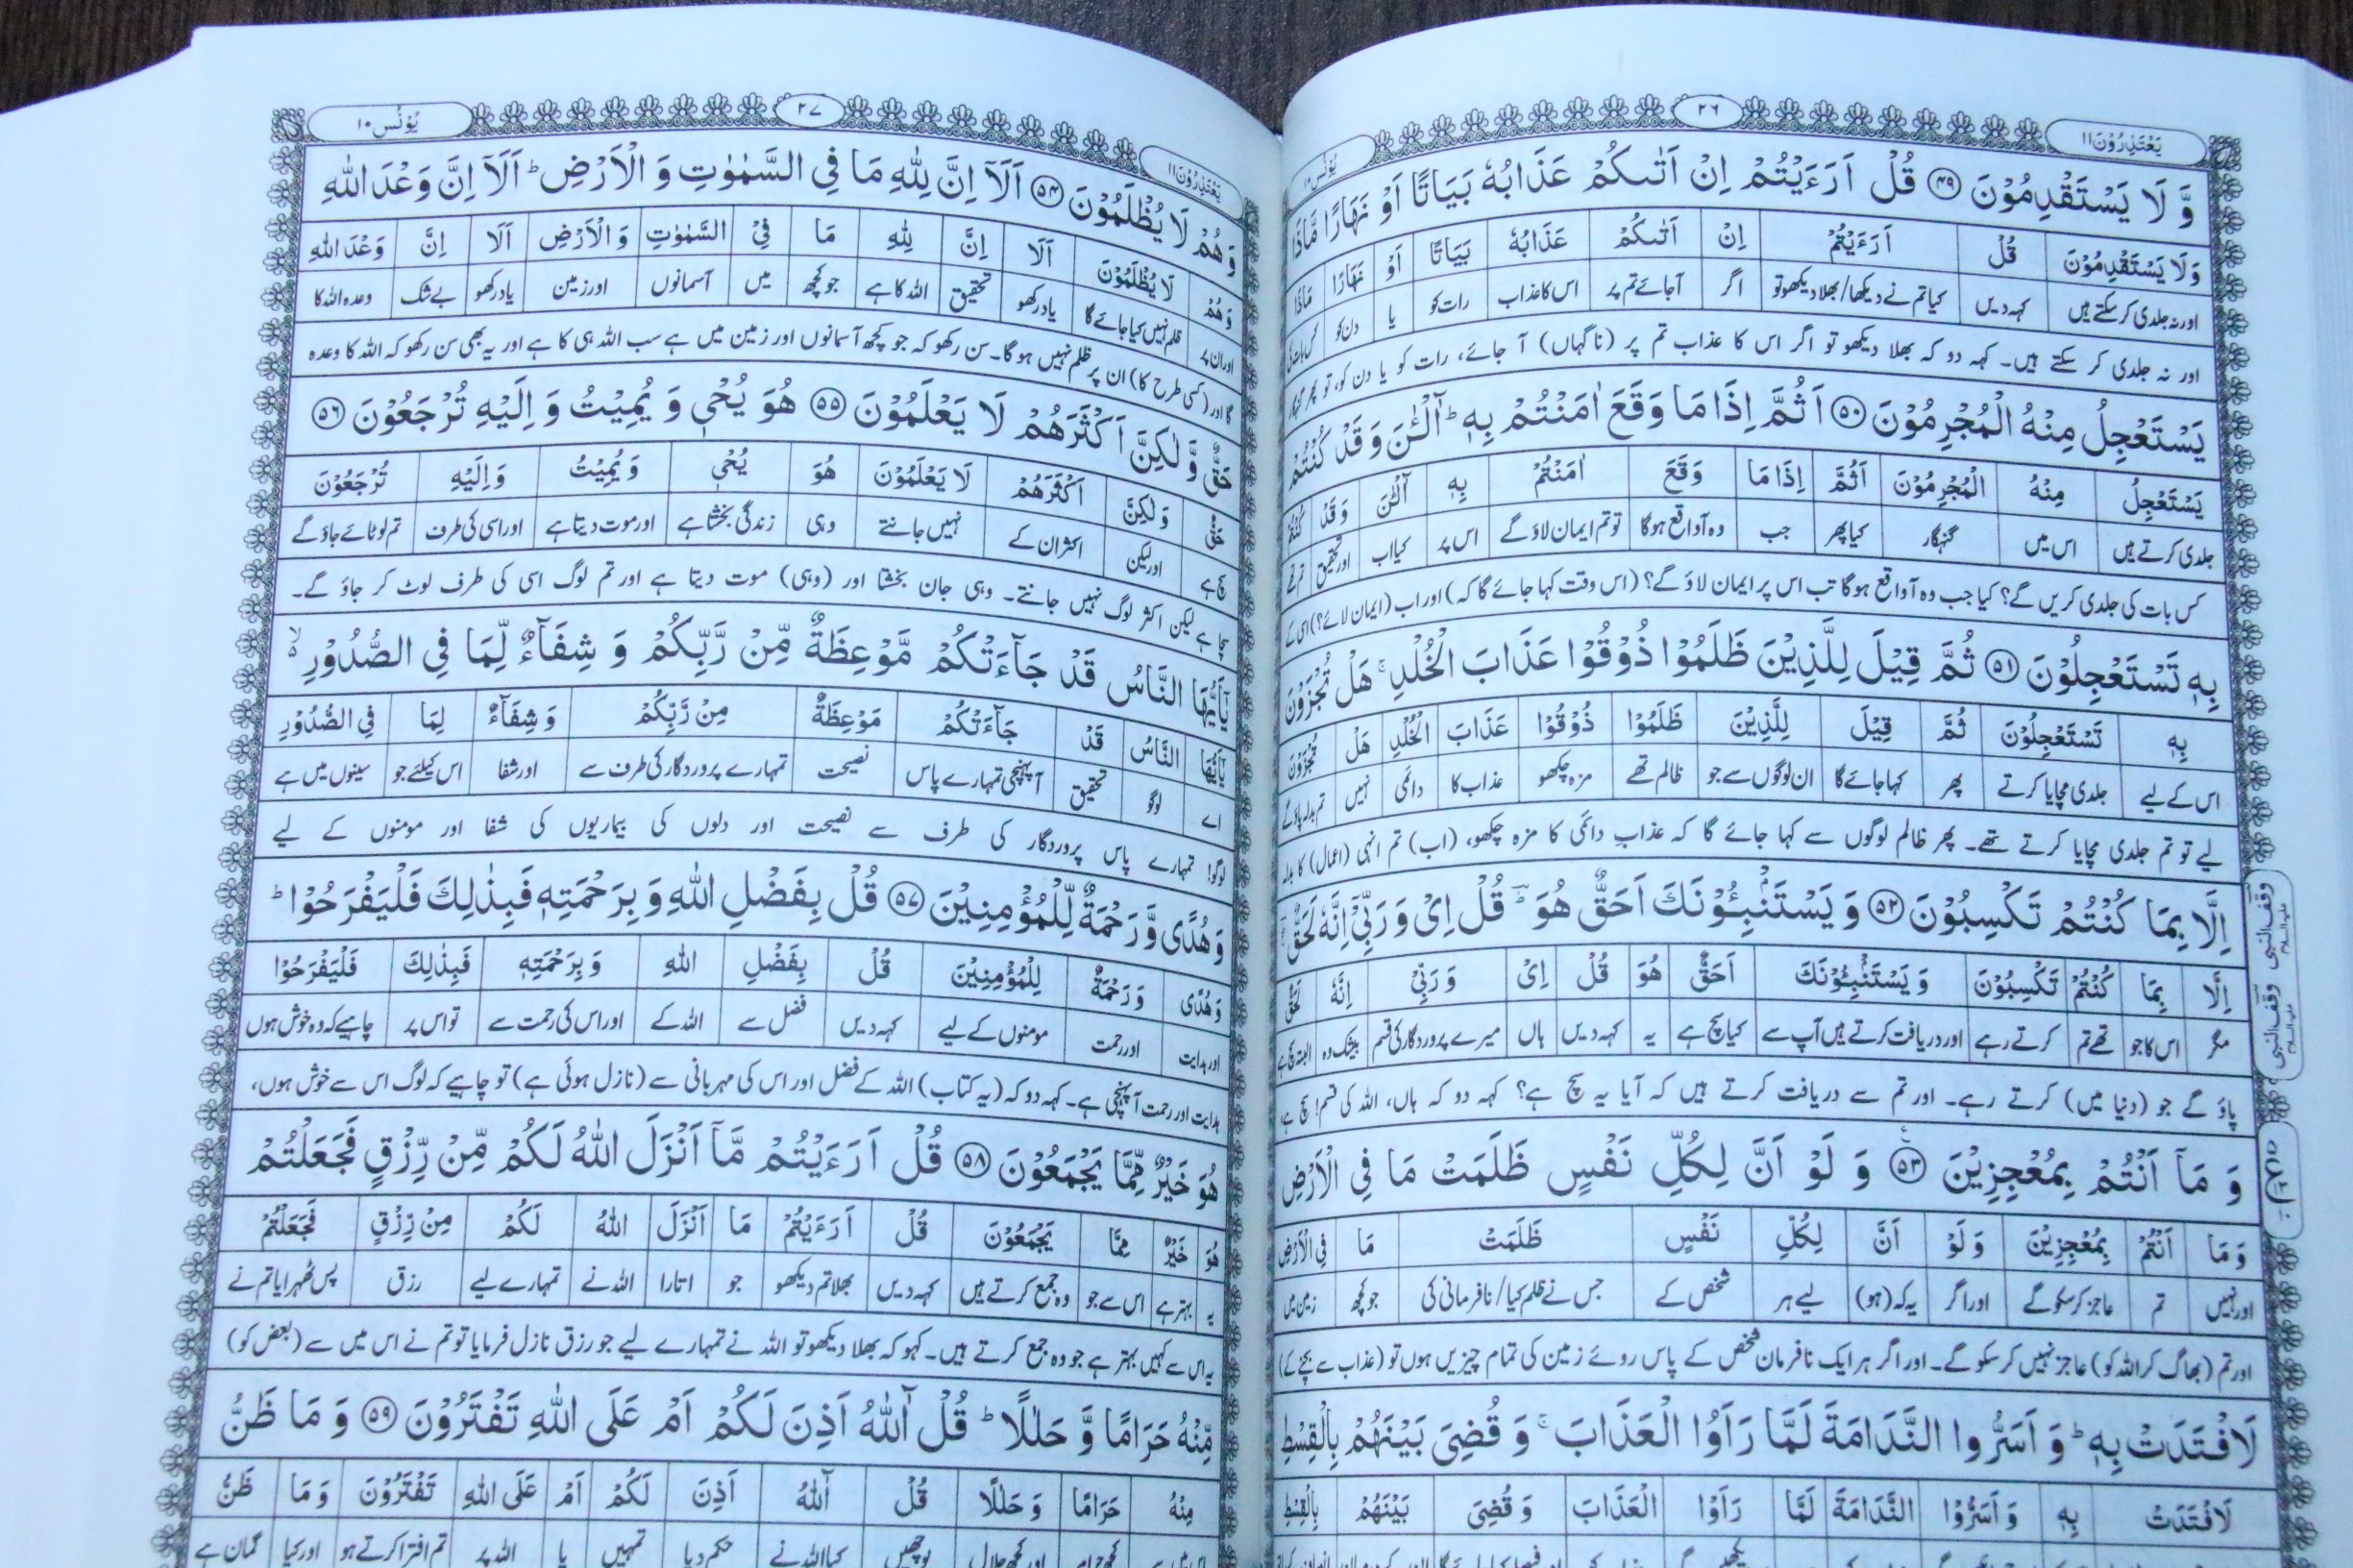 یَعْتَذِرُوْنَ۱۱
۲۶
یُوْنُس۱۰
وَّ لَا یَسْتَقْدِمُوْنَ ۴۹ قُلْ اَرَءَیْتُمْ اِنْ اَتٰىكُمْ عَذَابُهٗ بَیَاتًا اَوْ نَهَارًا مَّاذَا
وَلَا یَسْتَقْدِمُوْنَ قُلْ اَرَءَیْتُمْ اِنْ اَتٰىكُمْ عَذَابُهٗ بَیَاتًا اَوْ نَهَارًا مَاذَا
اور نہ جلدی کر سکتے ہیں کہہ دیں کیا تم نے دیکھا/بھلا دیکھو تو اگر آجائے تم پر اس کا عذاب رات کو یا دن کو
اور نہ جلدی کر سکتے ہیں۔ کہہ دو کہ بھلا دیکھو تو اگر اس کا عذاب تم پر (ناگہاں) آ جائے، رات کو یا دن کو، تو پھر
یَسْتَعْجِلُ مِنْهُ الْمُجْرِمُوْنَ ۵۰ اَثُمَّ اِذَا مَا وَقَعَ اٰمَنْتُمْ بِهٖ ؕ آٰلْـٰٔنَ وَ قَدْ كُنْتُمْ
یَسْتَعْجِلُ مِنْهُ الْمُجْرِمُوْنَ اَثُمَّ اِذَا مَا وَقَعَ اٰمَنْتُمْ بِهٖ آٰلْـٰٔنَ وَ قَدْ كُنْتُمْ
جلدی کرتے ہیں اس میں گنہگار کیا پھر جب وہ آواقع ہوگا تو تم ایمان لاؤ گے اس پر کیا اب اور تحقیق تم تھے
کس بات کی جلدی کریں گے؟ کیا جب وہ آواقع ہوگا تب اس پر ایمان لاؤ گے؟ (اس وقت کہا جائے گا کہ) اور اب (ایمان لائے؟) اسی کے
بِهٖ تَسْتَعْجِلُوْنَ ۵۱ ثُمَّ قِیْلَ لِلَّذِیْنَ ظَلَمُوْا ذُوْقُوْا عَذَابَ الْخُلْدِ ۚ هَلْ تُجْزَوْنَ
بِهٖ تَسْتَعْجِلُوْنَ ثُمَّ قِیْلَ لِلَّذِیْنَ ظَلَمُوْا ذُوْقُوْا عَذَابَ الْخُلْدِ هَلْ تُجْزَوْنَ
اس کے لیے جلدی مچایا کرتے پھر کہا جائے گا ان لوگوں سے جو ظالم تھے مزہ چکھو عذاب کا دائمی نہیں تم بدلہ پاؤ گے
لیے تو تم جلدی مچایا کرتے تھے۔ پھر ظالم لوگوں سے کہا جائے گا کہ عذابِ دائمی کا مزہ چکھو، (اب) تم انہی (اعمال) کا بدلہ
اِلَّا بِمَا كُنْتُمْ تَكْسِبُوْنَ ۵۲ وَ یَسْتَنْۢبِـُٔوْنَكَ اَحَقٌّ هُوَ ؔؕ قُلْ اِیْ وَ رَبِّیْۤ اِنَّهٗ لَحَقٌّ
اِلَّا بِمَا كُنْتُمْ تَكْسِبُوْنَ وَ یَسْتَنْۢبِـُٔوْنَكَ اَحَقٌّ هُوَ قُلْ اِیْ وَ رَبِّیْ اِنَّهٗ لَحَقٌّ
مگر اس کا جو تھے تم کرتے رہے اور دریافت کرتے ہیں آپ سے کیا سچ ہے یہ کہہ دیں ہاں میرے پروردگار کی قسم بیشک وہ البتہ حق ہے
پاؤ گے جو (دنیا میں) کرتے رہے۔ اور تم سے دریافت کرتے ہیں کہ آیا یہ سچ ہے؟ کہہ دو کہ ہاں، اللہ کی قسم! سچ ہے
وَ مَاۤ اَنْتُمْ بِمُعْجِزِیْنَ ۵۳ وَ لَوْ اَنَّ لِكُلِّ نَفْسٍ ظَلَمَتْ مَا فِی الْاَرْضِ
وَ مَا اَنْتُمْ بِمُعْجِزِیْنَ وَ لَوْ اَنَّ لِكُلِّ نَفْسٍ ظَلَمَتْ مَا فِی الْاَرْضِ
اور نہیں تم عاجز کرسکو گے اور اگر یہ کہ (ہو) لیے ہر شخص کے جس نے ظلم کیا/نافرمانی کی جو کچھ زمین میں
اور تم (بھاگ کر اللہ کو) عاجز نہیں کر سکو گے۔ اور اگر ہر ایک نافرمان شخص کے پاس روئے زمین کی تمام چیزیں ہوں تو (عذاب سے بچنے کے)
لَافْتَدَتْ بِهٖ ؕ وَ اَسَرُّوا النَّدَامَةَ لَمَّا رَاَوُا الْعَذَابَ ۚ وَ قُضِیَ بَیْنَهُمْ بِالْقِسْطِ
لَافْتَدَتْ بِهٖ وَ اَسَرُّوْا النَّدَامَةَ لَمَّا رَاَوْا الْعَذَابَ وَ قُضِیَ بَیْنَهُمْ بِالْقِسْطِ
وقف النبی علیہ السلام وقف النبی علیہ السلام
یَعْتَذِرُوْنَ۱۱
۲۷
یُوْنُس۱۰
وَ هُمْ لَا یُظْلَمُوْنَ ۵۴ اَلَاۤ اِنَّ لِلّٰهِ مَا فِی السَّمٰوٰتِ وَ الْاَرْضِ ؕ اَلَاۤ اِنَّ وَعْدَ اللّٰهِ
وَ هُمْ لَا یُظْلَمُوْنَ اَلَا اِنَّ لِلّٰهِ مَا فِیْ السَّمٰوٰتِ وَ الْاَرْضِ اَلَا اِنَّ وَعْدَ اللّٰهِ
اور ان پر ظلم نہیں کیا جائے گا یاد رکھو تحقیق اللہ کا ہے جو کچھ میں آسمانوں اور زمین یاد رکھو بے شک وعدہ اللہ کا
گا اور (کسی طرح کا) ان پر ظلم نہیں ہو گا۔ سن رکھو کہ جو کچھ آسمانوں اور زمین میں ہے سب اللہ ہی کا ہے اور یہ بھی سن رکھو کہ اللہ کا وعدہ
حَقٌّ وَّ لٰكِنَّ اَكْثَرَهُمْ لَا یَعْلَمُوْنَ ۵۵ هُوَ یُحْیٖ وَ یُمِیْتُ وَ اِلَیْهِ تُرْجَعُوْنَ ۵۶
حَقٌّ وَ لٰكِنَّ اَكْثَرَهُمْ لَا یَعْلَمُوْنَ هُوَ یُحْیٖ وَ یُمِیْتُ وَ اِلَیْهِ تُرْجَعُوْنَ
سچ ہے اور لیکن اکثر ان کے نہیں جانتے وہی زندگی بخشتا ہے اور موت دیتا ہے اور اسی کی طرف تم لوٹائے جاؤ گے
سچا ہے لیکن اکثر لوگ نہیں جانتے۔ وہی جان بخشتا اور (وہی) موت دیتا ہے اور تم لوگ اسی کی طرف لوٹ کر جاؤ گے۔
یٰۤاَیُّهَا النَّاسُ قَدْ جَآءَتْكُمْ مَّوْعِظَةٌ مِّنْ رَّبِّكُمْ وَ شِفَآءٌ لِّمَا فِی الصُّدُوْرِ ۙ۬
یٰۤاَیُّهَا النَّاسُ قَدْ جَآءَتْكُمْ مَوْعِظَةٌ مِنْ رَّبِّكُمْ وَ شِفَآءٌ لِمَا فِی الصُّدُوْرِ
اے لوگو تحقیق آ پہنچی تمہارے پاس نصیحت تمہارے پروردگار کی طرف سے اور شفا اس کیلئے جو سینوں میں ہے
لوگو! تمہارے پاس پروردگار کی طرف سے نصیحت اور دلوں کی بیماریوں کی شفا اور مومنوں کے لیے
وَ هُدًی وَّ رَحْمَةٌ لِّلْمُؤْمِنِیْنَ ۵۷ قُلْ بِفَضْلِ اللّٰهِ وَ بِرَحْمَتِهٖ فَبِذٰلِكَ فَلْیَفْرَحُوْا ؕ
وَ هُدًی وَ رَحْمَةٌ لِلْمُؤْمِنِیْنَ قُلْ بِفَضْلِ اللّٰهِ وَ بِرَحْمَتِهٖ فَبِذٰلِكَ فَلْیَفْرَحُوْا
اور ہدایت اور رحمت مومنوں کے لیے کہہ دیں فضل سے اللہ کے اور اس کی رحمت سے تو اس پر چاہیے کہ وہ خوش ہوں
ہدایت اور رحمت آ پہنچی ہے۔ کہہ دو کہ (یہ کتاب) اللہ کے فضل اور اس کی مہربانی سے (نازل ہوئی ہے) تو چاہیے کہ لوگ اس سے خوش ہوں،
هُوَ خَیْرٌ مِّمَّا یَجْمَعُوْنَ ۵۸ قُلْ اَرَءَیْتُمْ مَّاۤ اَنْزَلَ اللّٰهُ لَكُمْ مِّنْ رِّزْقٍ فَجَعَلْتُمْ
هُوَ خَیْرٌ مِمَّا یَجْمَعُوْنَ قُلْ اَرَءَیْتُمْ مَا اَنْزَلَ اللّٰهُ لَكُمْ مِنْ رِّزْقٍ فَجَعَلْتُمْ
یہ بہتر ہے اس سے جو وہ جمع کرتے ہیں کہہ دیں بھلا تم دیکھو جو اتارا اللہ نے تمہارے لیے رزق پس ٹھہرایا تم نے
یہ اس سے کہیں بہتر ہے جو وہ جمع کرتے ہیں۔ کہو کہ بھلا دیکھو تو اللہ نے تمہارے لیے جو رزق نازل فرمایا تو تم نے اس میں سے (بعض کو)
مِّنْهُ حَرَامًا وَّ حَلٰلًا ؕ قُلْ آٰللّٰهُ اَذِنَ لَكُمْ اَمْ عَلَی اللّٰهِ تَفْتَرُوْنَ ۵۹ وَ مَا ظَنُّ
مِنْهُ حَرَامًا وَ حَلٰلًا قُلْ آٰللّٰهُ اَذِنَ لَكُمْ اَمْ عَلَی اللّٰهِ تَفْتَرُوْنَ وَ مَا ظَنُّ
پوچھیں کیا اللہ نے حکم دیا تمہیں یا اللہ پر تم افترا کرتے ہو اور کیا گمان ہے